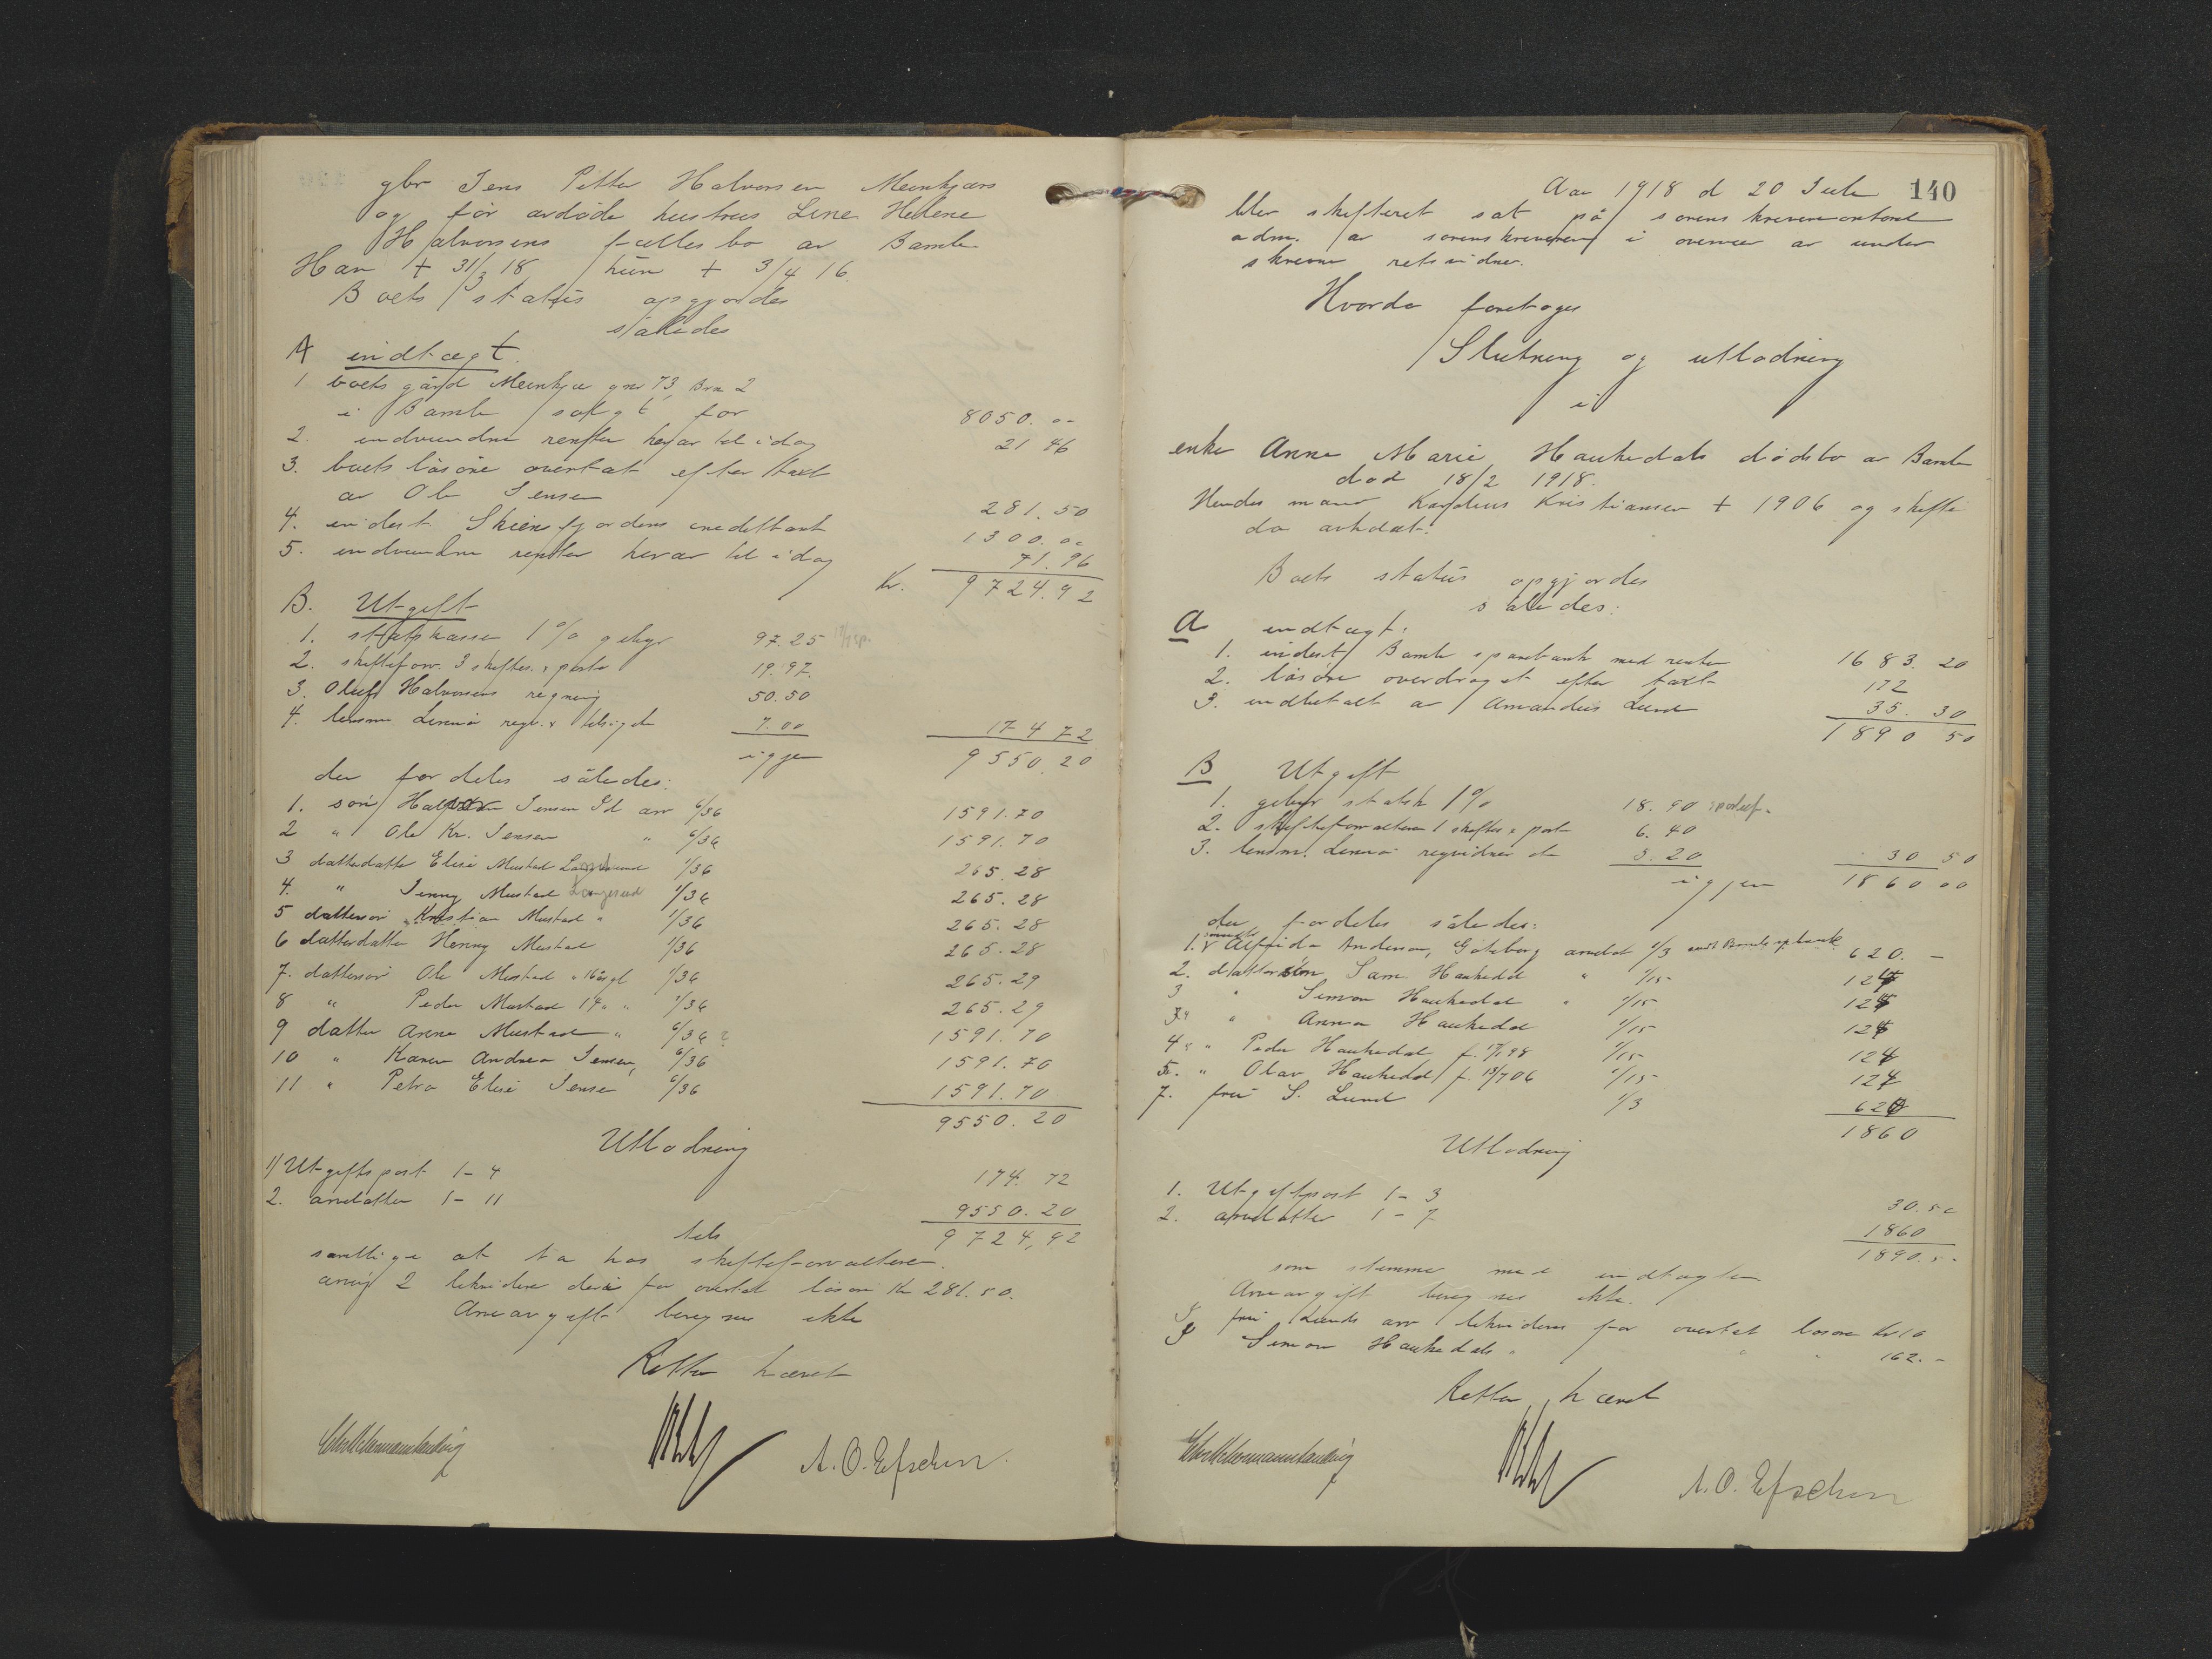 gbr Jens Petter Halvorsen Meenkjærs
og før avdøde hustrus Line Helene
Halvorsens fællesbo av Bamle
Han + 31/3 18 hun + 3/4 16.
Boets status opgjordes
således
A indtægt.
1 boets gård Meenkjær gnr 73, Brn 2
i Bamle solgt for 8050.00
2. indvundne renter herav til idag 21 46
3. boets løsøre overtat efter taxt
av Ole Jensen 281.50
4. indest. Skiensfjordens creditbank 1300.00
5. indvundne renter herav til idag 71.96
Kr. 9724.92
B. Utgift
1. statskassen 1% gebyr 97.25
2. skifteforv. 3 skiftes. & porto 19.97.
3. Olufs Halvorsens regning 50.50
4. lensm. regn. & tilsigelse 7.00 174 72
igjen 9550.20
der fordeles således:
1. søn Halvor Jensen arv 6/36 1591.70
2 " Ole Kr. Jensen " 6/36 1591.70
3 datterdatter Elise Mustad Langesund 1/36 265.28
4. " Jenny Mustad Langesund 1/36 265.28
5 dattersøn Kristian Mustad " 1/36 265.28
6 datterdatter Henny Mustad 1/36 265.28
7. dattersøn Ole Mustad " 16 år gl 1/36 265.29
8 " Peder Mustad 14 " " 1/36 265.29
9 datter Anne Mustad " 6/36 ? 1591.70
10 " Karen Andrea Jensen, 6/36 1591.70
11 " Petra Elise Jensen 6/36 1591.70
9550.20
Utlodning
1) Utgiftspost 1-4 174.72
2. arvelatter 1-11 9550.20
tils 9724,92
samtlige at ta hos skifteforvalteren.
arving 2 likviderer deri for overtat løsøre Kr 281.50.
Arveavgift beregnes ikke
Retten hævet
A. O. Efschen.
140
Aar 1918 d 20 Juli
blev skifteret sat på sorenskriverkontoret
adm. av sorenskriveren i overvær av under
skrevne retsvidner.
Hvorda foretoges
Slutning og utlodning
i
enke Anne Marie Haukedals dødsbo av Bamle
død 18/2 1918.
Hendes mand Kristiansen + 1906 og skifte
da avholdt.
Boets status opgjordes
således:
A indtægt:
1. indest. Bamle sparebank med renter 1683.20
2. løsøre overdraget efter taxt 172
3. indbetalt av Amandus Lund 35.30
1890 50
B Utgift
1. gebyr statsk 1% 18.90
2. skifteforvalteren 1 skiftes & porto 6.40
3. lensm. regn vidner etc 5.20 30 50
igjen 1860 00
der fordeles således:
1. Alfrida Anderson, Göteborg arvelod 1/3 620.-
2. dattersøn Sam. Haukedal " 1/15 124
3 " Simon Haukedal " 1/15 124
" Anna Haukedal 1/15 124
4 " Peder Haukedal f. 98 1/15 124
5. " Olav Haukedal f. 13/7 06 1/15 124
7. fru S. Lund 1/3 620
1860
Utlodning
1. Utgiftpost 1-3 30.50
2. arvelatter 1-7 1860
1890.50
som stemmer med indtægten
Arveavgift beregnes ikke.
fru Lunds arv likvideres for overtat løsøre Kr 10
Simon Haukedals " " " 162.-
Retten hævet
A. O. Efschen